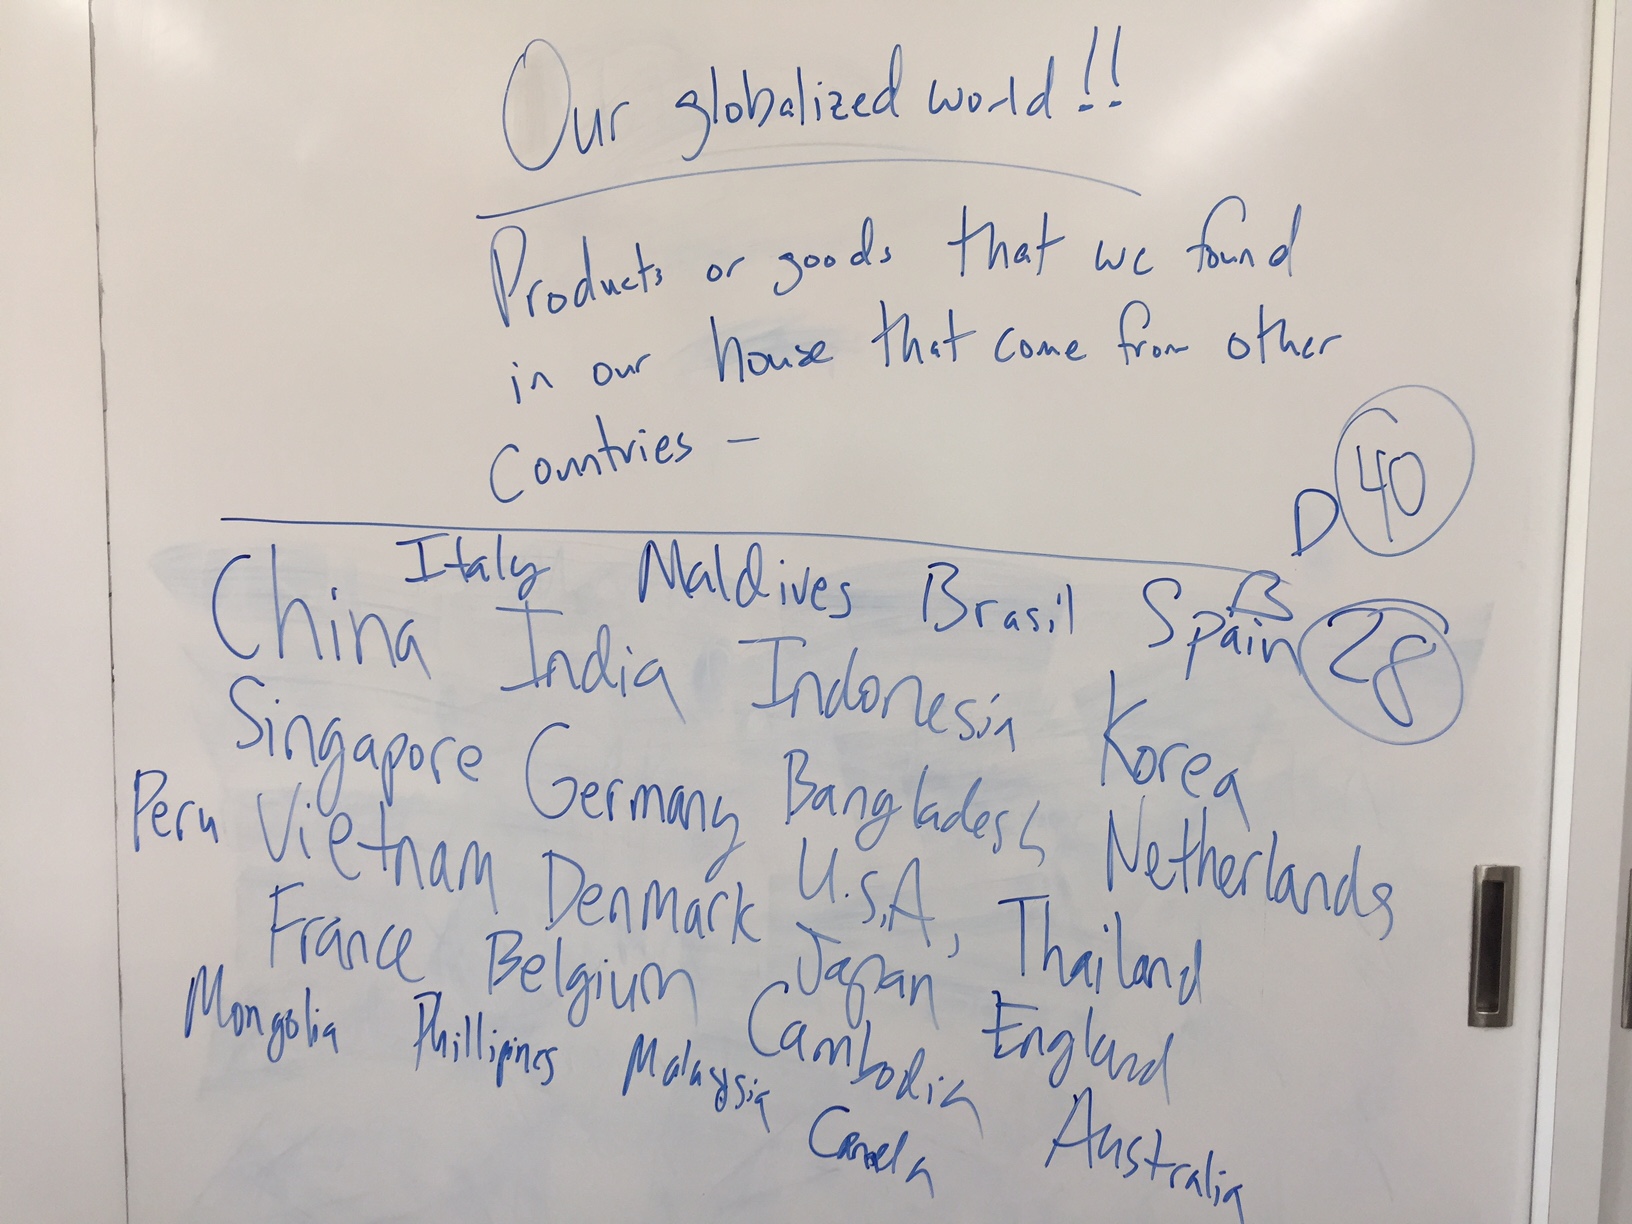 Our globalized world!!
Products or goods that we found
in our house that come from other
Countries -
D 40
Italy Maldives Brasil Spain
B 28
China India Indonesia Korea
Singapore Germany Bangladesh Netherlands
Peru Vietnam Denmark U.S.A, Thailand
France Belgium Japan England
Mongolia Phillipines Malaysia Cambodia
Canada Australia